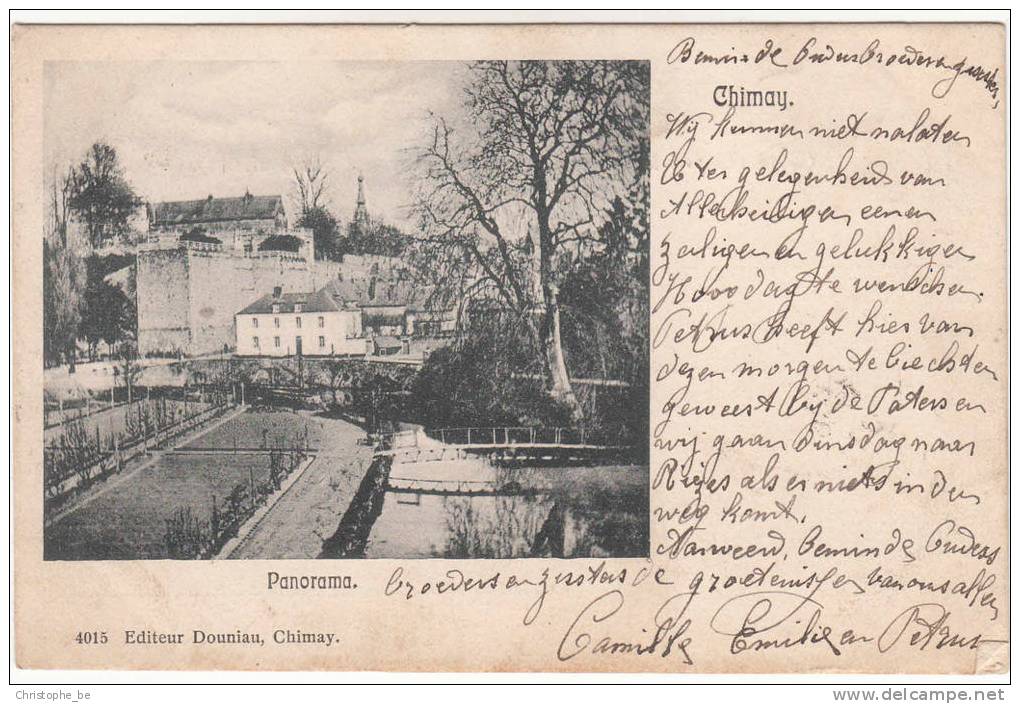 Beminde Ouders broeders en zusters,
Chimay.
Wij kunnen niet nalaten
U ter gelegenheid van
Allerheiligen eenen
zaligen en gelukkigen
Hoogdag te wenschen.
Petrus heeft hier van
dezen morgen te biechten
geweest bij de Paters en
wij gaan dinsdag naar
Rizes als er niets in den
weg komt.
Aanveerd, beminde Ouders
broeders en zusters de groetenissen van ons allen
Panorama.
Camille, Emilie en Petrus
4015 Editeur Douniau, Chimay.
Christophe_be
http://www.delcampe.net